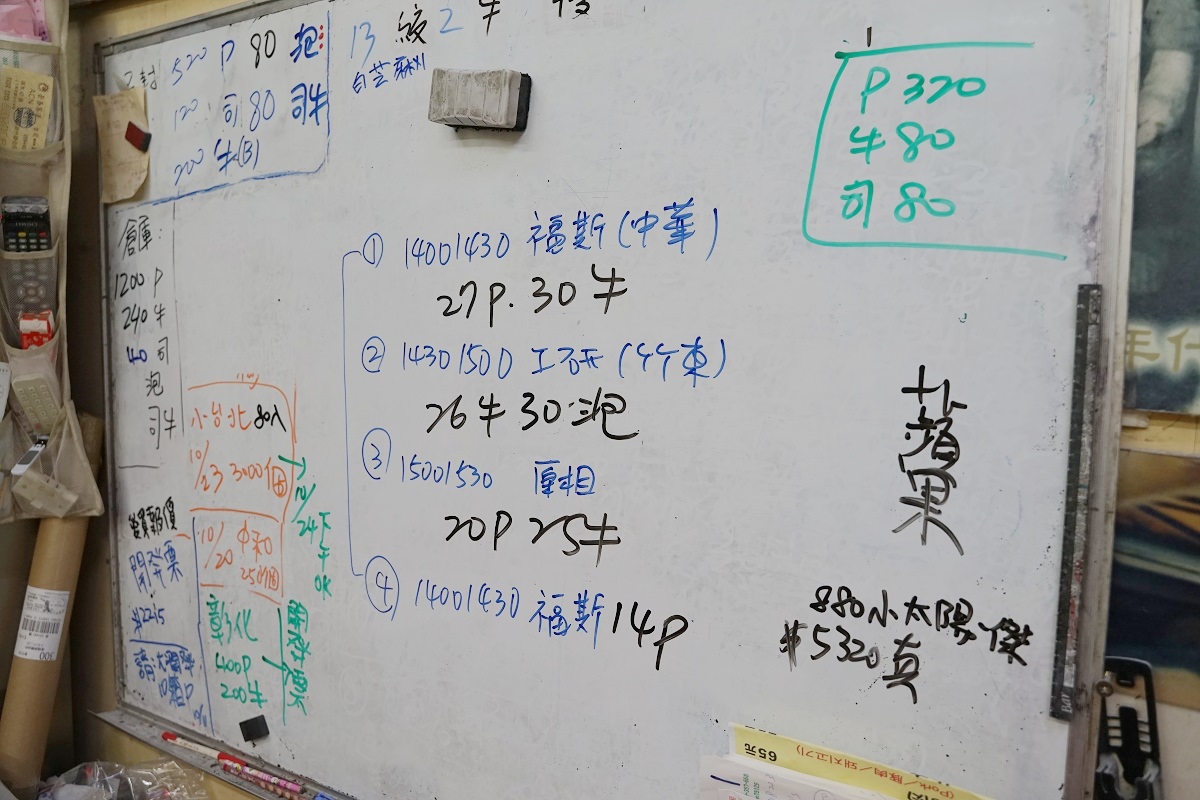 520 P 80 泡
120 司 80 司牛
200 牛(B)
13 絞 2 牛
白芝麻料
P 320
牛 80
司 80
倉庫:
1200 P
240 牛
40 司
泡
司牛
① 14001430 福斯(中華)
27P. 30牛
② 14301500 工研(竹東)
26牛 30泡
③ 15001530 厚相
20P 25牛
④ 14001430 福斯 14P
小台北 80入
10/23 3000個
10/24下午OK
10/20 中和
2500個
報價
開發票
$2215
彰化
400P
200牛
開發票
蘋果
880小太陽 傑
$5320 真
65元
(Pork / 豚肉 / 돼지고기)